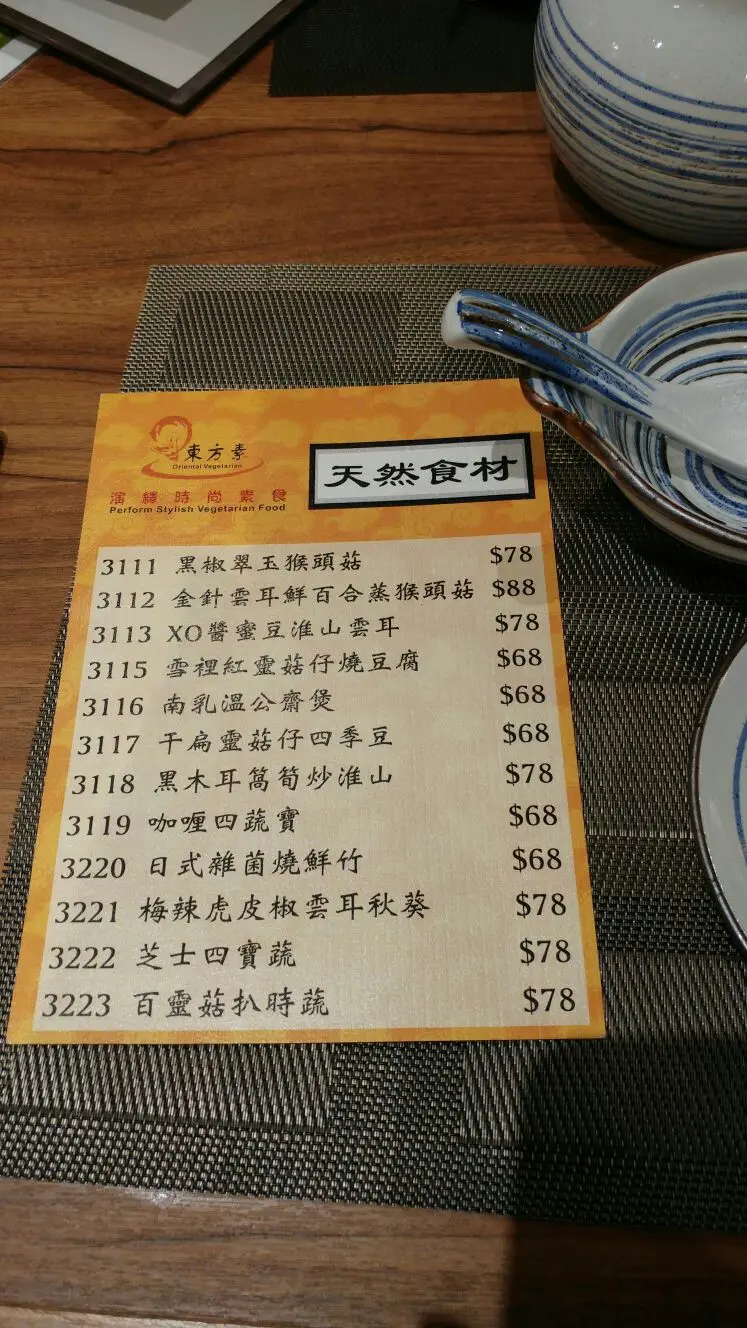 東方素
Oriental Vegetarian
演繹時尚素食
Perform Stylish Vegetarian Food
天然食材
3111 黑椒翠玉猴頭菇 $78
3112 金針雲耳鮮百合蒸猴頭菇 $88
3113 XO醬蜜豆淮山雲耳 $78
3115 雪裡紅靈菇仔燒豆腐 $68
3116 南乳溫公齋煲 $68
3117 干扁靈菇仔四季豆 $68
3118 黑木耳萵筍炒淮山 $78
3119 咖喱四蔬寶 $68
3220 日式雜菌燒鮮竹 $68
3221 梅辣虎皮椒雲耳秋葵 $78
3222 芝士四寶蔬 $78
3223 百靈菇扒時蔬 $78